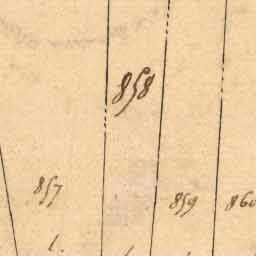 858
857
859
860
l.